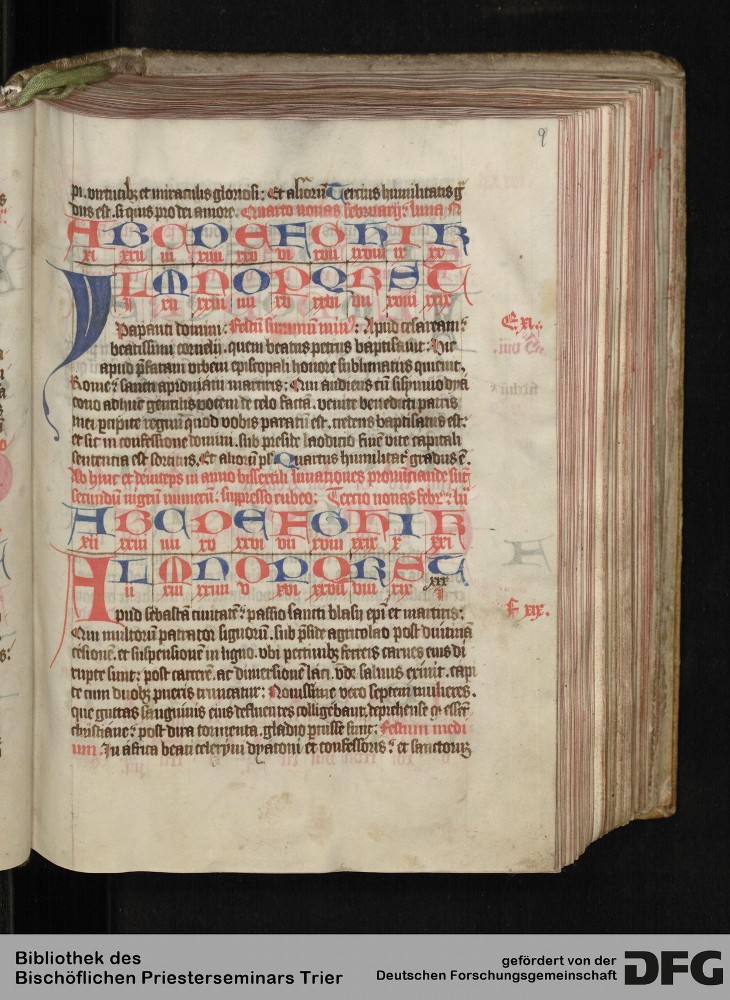 9
pi. virtutibz et miraculis gloriosi: Et alioru Tercius humilitatis g
dus est. si quis pro dei amore. Quarto nonas februarij: luna
A B C D E F G H I K
xi xxii iii xiiii xxv vi xvii xxviii ix xx
L M N O P Q R S T
i xii xxiii iiii xv xxvi vii xviii xxix
Ypapanti domini: Festu summum mius: Apud cesaream:
beatissimi cornelij. quem beatus petrus baptisauit: Hic
apud pfatam vrbem episcopali honore sublimatus quieuit.
Rome: sancti aproniani martiris: Qui audiens cu sisinnio dya
cono adhuc gentilis vocem de celo factam. venite benedicti patris
mei pcipite regnu quod vobis paratu est. credens baptisatus est:
et sic in confessione domini. sub preside laodicio fine vite capitali
sententia est sortitus. Et alioru ps Quartus humilitat gradus e.
Ab hinc et deinceps in anno bissextili lunationes pronunciande sut
secundu nigru numeru: supresso rubeo: Tercio nonas febr: lu
A B C D E F G H I K
xii xxiii iiii xv xxvi vii xviii xxix x xxi
L M N O P Q R S T
ii xiii xxiiii v xvi xxvii viii xix xxx
i
Apud sebasta ciuitate: passio sancti blasij epi et martiris:
Qui multoru patrator signoru. sub pside agricolao post diutina
cesione. et suspensione in ligno. vbi pectinibz ferreis carnes eius di
rupte sunt: post carcere. ac dimersione laci. vnde saluus exiuit. capi
te cum duobz pueris truncatur: Nouissime vero septem mulieres.
que guttas sanguinis eius defluentes colligebant. deprehense q essent
christiane: post dira tormenta. gladio pcusse sunt: Festum medi
um: In africa beati celerini dyaconi et confessoris: et sanctorum
F xix.
Bibliothek des
Bischöflichen Priesterseminars Trier
gefördert von der
Deutschen Forschungsgemeinschaft
DFG